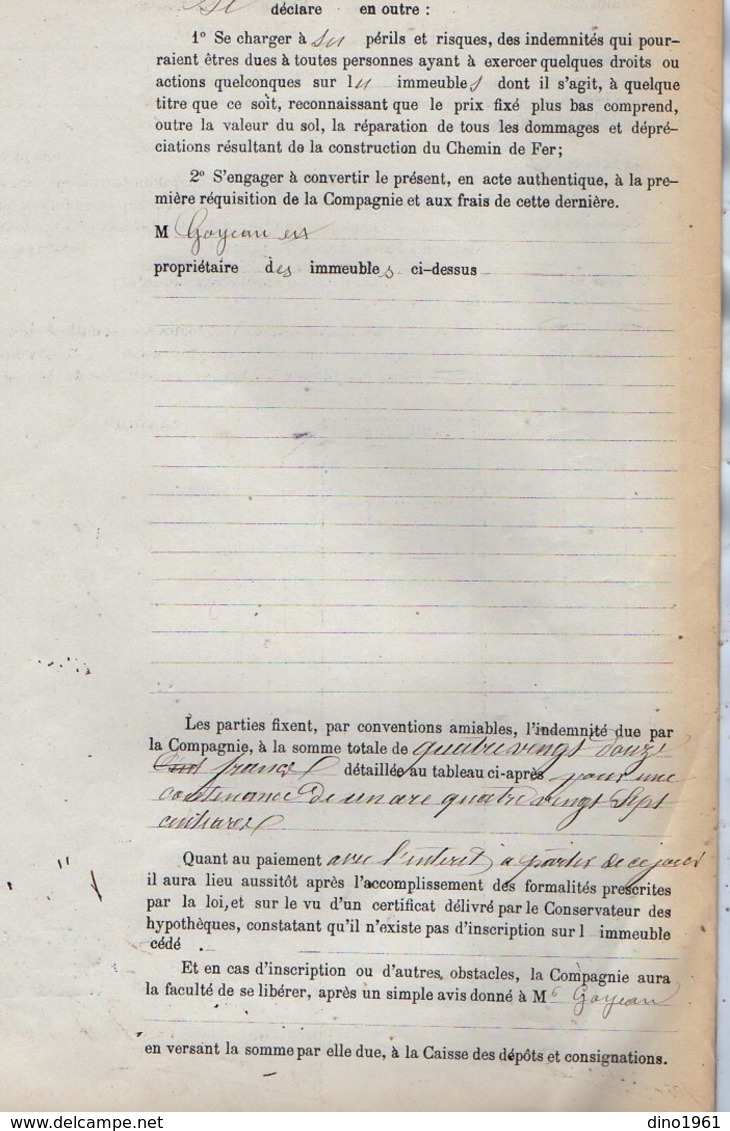 Il déclare en outre :
1° Se charger à ses périls et risques, des indemnités qui pour-
raient êtres dues à toutes personnes ayant à exercer quelques droits ou
actions quelconques sur les immeubles dont il s'agit, à quelque
titre que ce soit, reconnaissant que le prix fixé plus bas comprend,
outre la valeur du sol, la réparation de tous les dommages et dépré-
ciations résultant de la construction du Chemin de Fer;
2° S'engager à convertir le présent, en acte authentique, à la pre-
mière réquisition de la Compagnie et aux frais de cette dernière.
M Goyeau est
propriétaire des immeubles ci-dessus
Les parties fixent, par conventions amiables, l'indemnité due par
la Compagnie, à la somme totale de quatre vingt douze
francs détaillée au tableau ci-après pour une
contenance de un are quatre vingt sept
centiares
Quant au paiement avec l'interet à partir de ce jour
il aura lieu aussitôt après l'accomplissement des formalités prescrites
par la loi, et sur le vu d'un certificat délivré par le Conservateur des
hypothèques, constatant qu'il n'existe pas d'inscription sur l immeuble
cédé .
Et en cas d'inscription ou d'autres obstacles, la Compagnie aura
la faculté de se libérer, après un simple avis donné à M Goyeau
en versant la somme par elle due, à la Caisse des dépôts et consignations.
dino1961